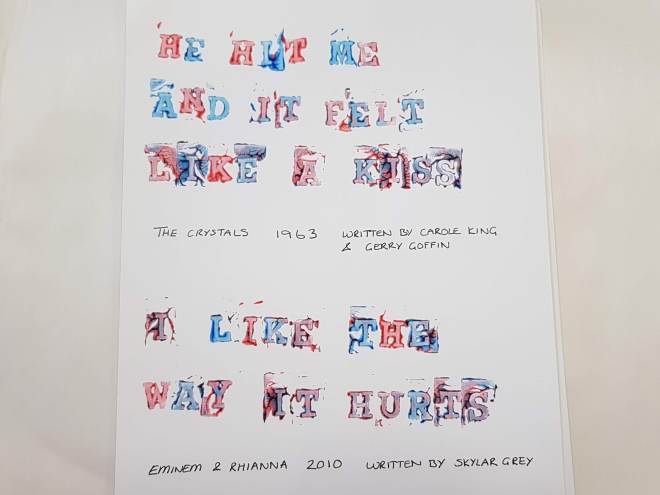 HE HIT ME
AND IT FELT
LIKE A KISS
THE CRYSTALS 1963 WRITTEN BY CAROLE KING
& GERRY GOFFIN
I LIKE THE
WAY IT HURTS
EMINEM & RHIANNA 2010 WRITTEN BY SKYLAR GREY